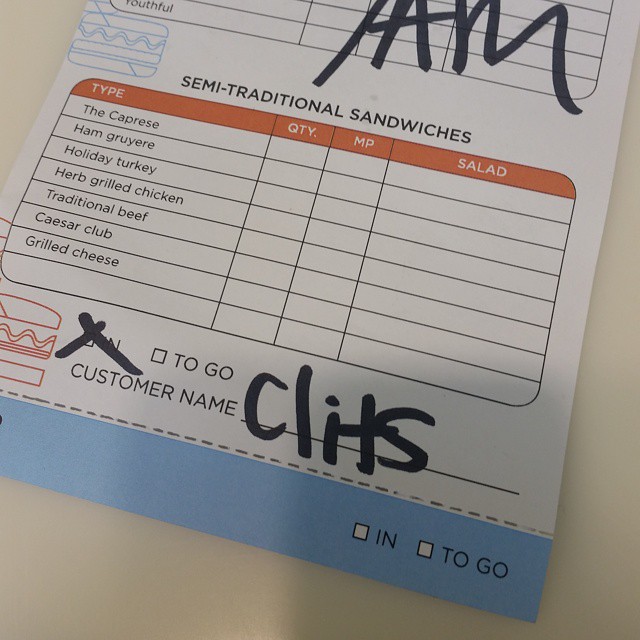 Youthful
AM
SEMI-TRADITIONAL SANDWICHES
TYPE QTY. MP SALAD
The Caprese
Ham gruyere
Holiday turkey
Herb grilled chicken
Traditional beef
Caesar club
Grilled cheese
IN TO GO
CUSTOMER NAME Clits
IN TO GO